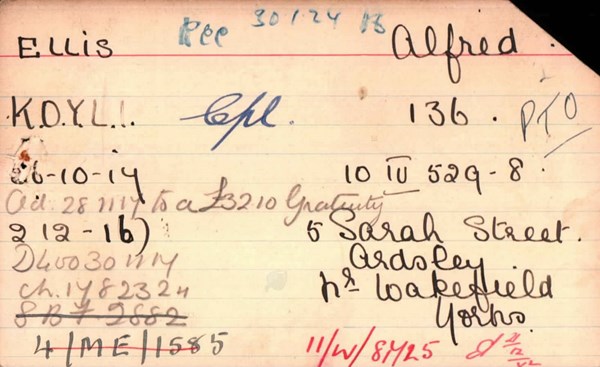 Rec 30.1.24
Ellis Alfred.
K.O.Y.L.I. Cpl. 136. PTO
26-10-17 10 IV 529-8.
Ad. 28 11 17 to a £32 10 Gratuity
2 12-16) 5 Sarah Street.
D400 30 11 17 Ardsley
Ch. 178 23 24 Nr Wakefield
SBF 2882 Yorks.
4/ME/1585 11/W/8725